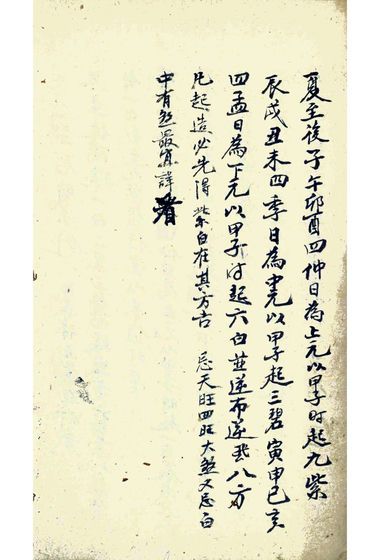 夏至後子午卯酉四仲日為上元以甲子时起九紫
辰戌丑未四季日為中元以甲子起三碧寅申巳亥
四孟日為下元以甲子时起六白並逆布逆飛八方
凡起造必先得紫白在其方吉 忌天旺四旺大煞又忌白
中有煞最宜詳看